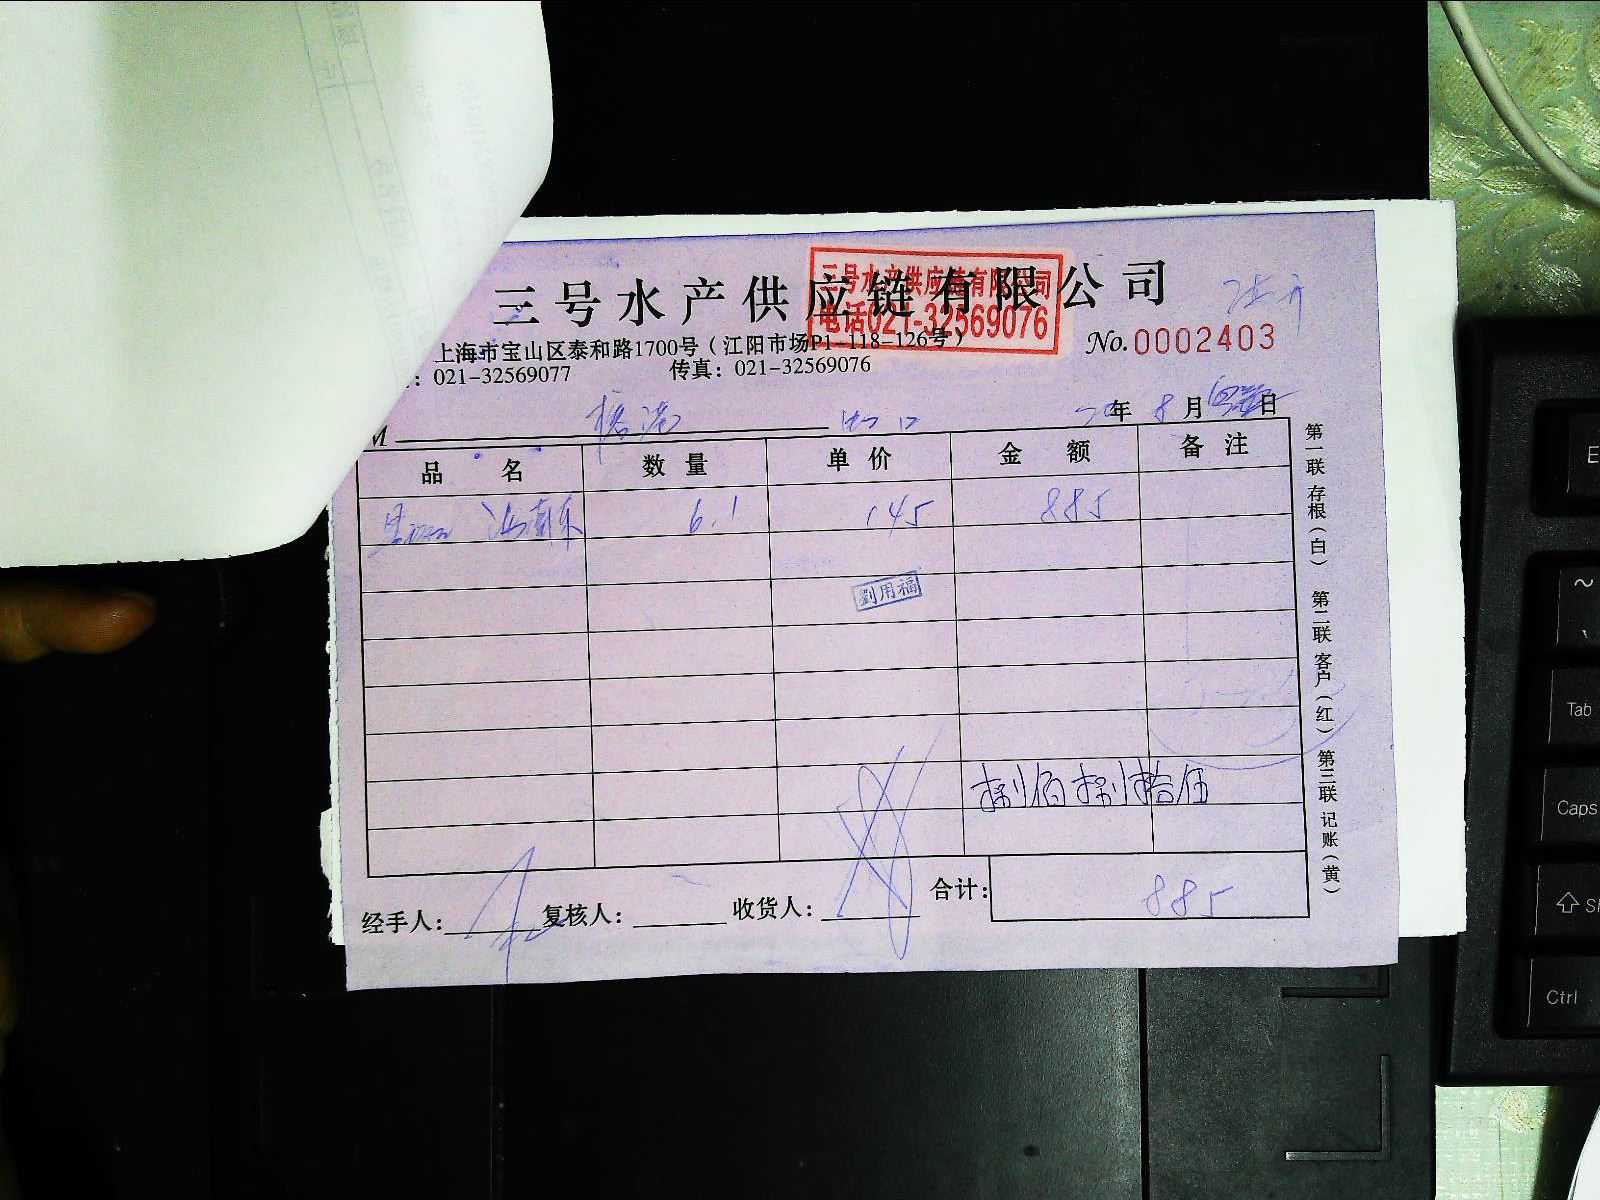 三号水产供应链有限公司
三号水产供应链有限公司
电话021-32569076
上海市宝山区泰和路1700号（江阳市场P1-118-126号）
No.0002403
：021-32569077 传真：021-32569076
M 年 8 月 日
品 名 数 量 单 价 金 额 备 注
6.1 145 885
劉用福
捌佰捌拾伍
经手人： 复核人： 收货人： 合计： 885
第一联 存根（白） 第二联 客户（红） 第三联 记账（黄）
E
~
、
Tab
Caps
Ctrl